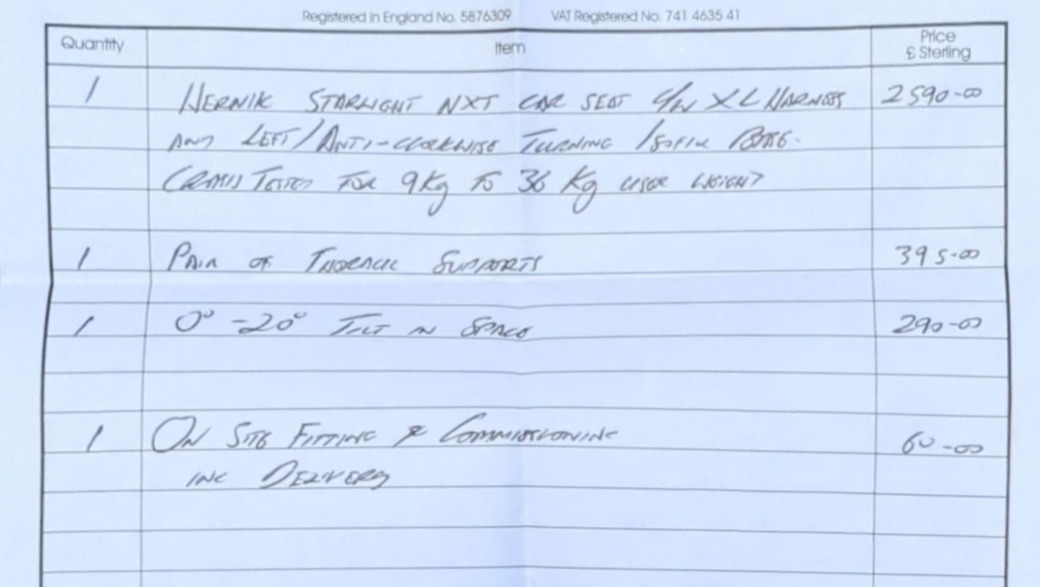 Registered in England No. 5876309 VAT Registered No. 741 4635 41
Quantity Item Price
£ Sterling
1 HERNIK STARLIGHT NXT CAR SEAT C/W XL HARNESS 2590-00
AND LEFT/ANTI-CLOCKWISE TURNING ISOFIX BASE.
CRASH TESTED FOR 9Kg TO 36 Kg USER WEIGHT
1 PAIR OF THORACIC SUPPORTS 395-00
1 0° -20° TILT IN SPACE 290-00
1 ON SITE FITTING & COMMISSIONING 60-00
INC DELIVERY